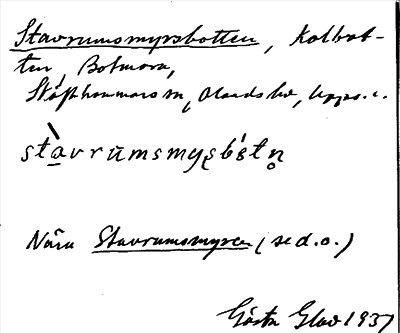 Stavrumsmyrsbotten, Kolbot-
ten, Botmora,
m, Olands hd, Upps. l.
stavrumsmyṣbʹstn̥
Nära Stavrumsmyren (se d.o.)
Gösta Glad 1937